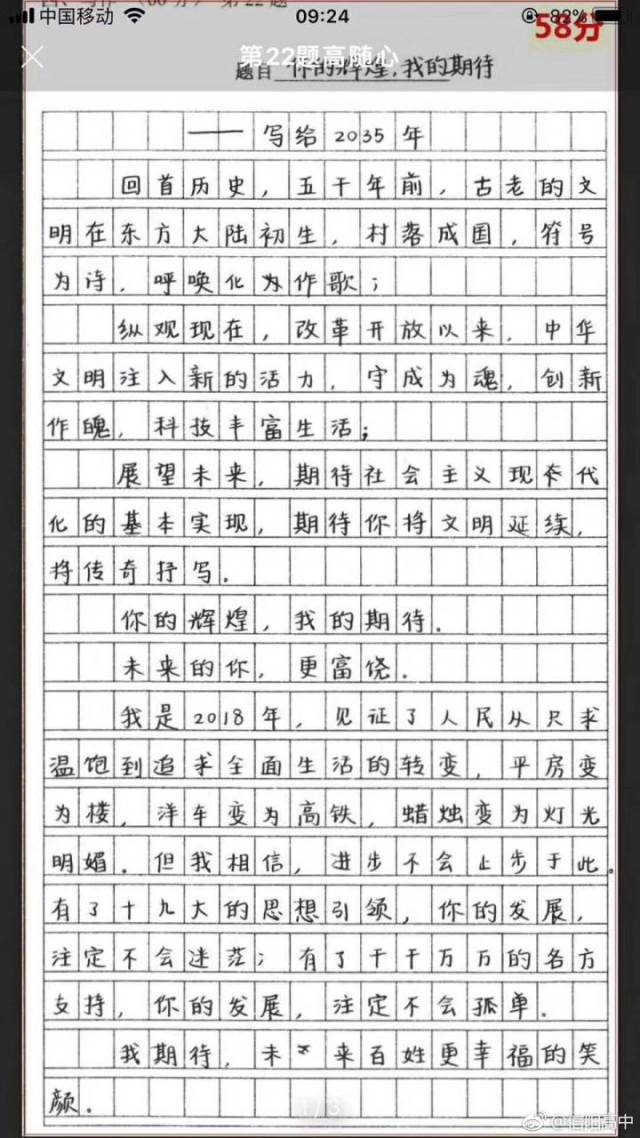 中国移动 09:24 82%
四、写作（60分） 第22题
58分
第22题高随心
题目 你的辉煌,我的期待
——写给2035年
回首历史，五千年前，古老的文
明在东方大陆初生，村落成国，符号
为诗，呼唤化为作歌；
纵观现在，改革开放以来，中华
文明注入新的活力，守成为魂，创新
作魄，科技丰富生活；
展望未来，期待社会主义现代
化的基本实现，期待你将文明延续，
将传奇抒写．
你的辉煌，我的期待．
未来的你，更富饶．
我是2018年，见证了人民从只求
温饱到追求全面生活的转变，平房变
为楼，洋车变为高铁，蜡烛变为灯光
明媚．但我相信，进步不会止步于此。
有了十九大的思想引领，你的发展，
注定不会迷茫；有了千千万万的各方
支持，你的发展，注定不会孤单．
我期待，未来百姓更幸福的笑
颜．
1/3
@信阳高中